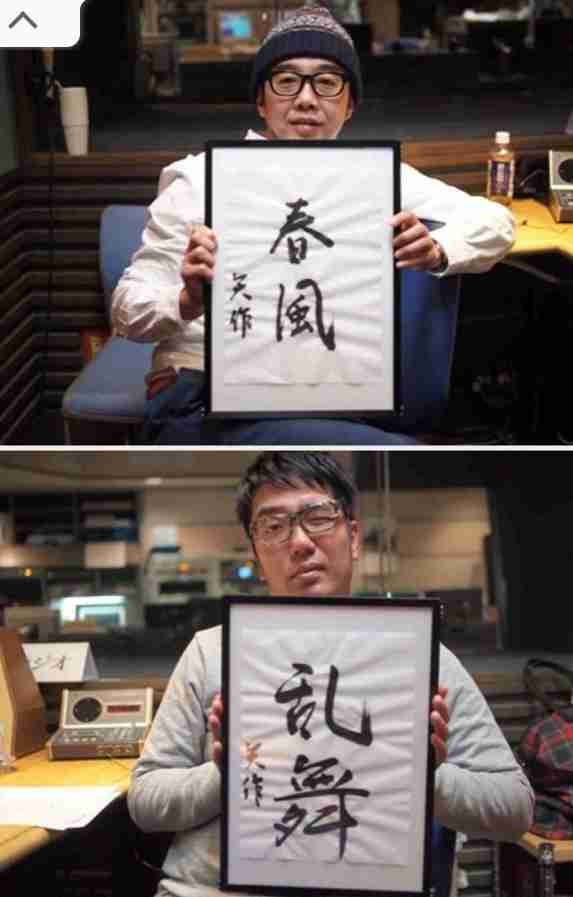 春風
矢作
乱舞
矢作
ジオ